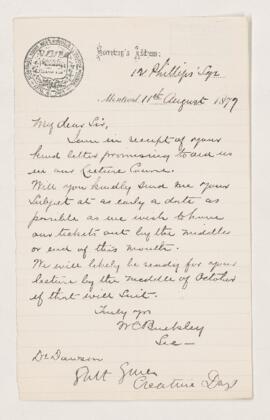 Secretary's Address:
12 Phillips' Sqr
Montreal, 11th August 1879
My dear Sir,
I am in receipt of your
kind letter promising to aid us
in our Lecture Course.
Will you kindly send me your
subject at as early a date as
possible as we wish to have
our tickets out by the middle
or end of this month.
We will likely be ready for your
lecture by the middle of October
if that will suit.
Truly yrs
W C Buckley
Sec –
Dr Dawson
Creative Days